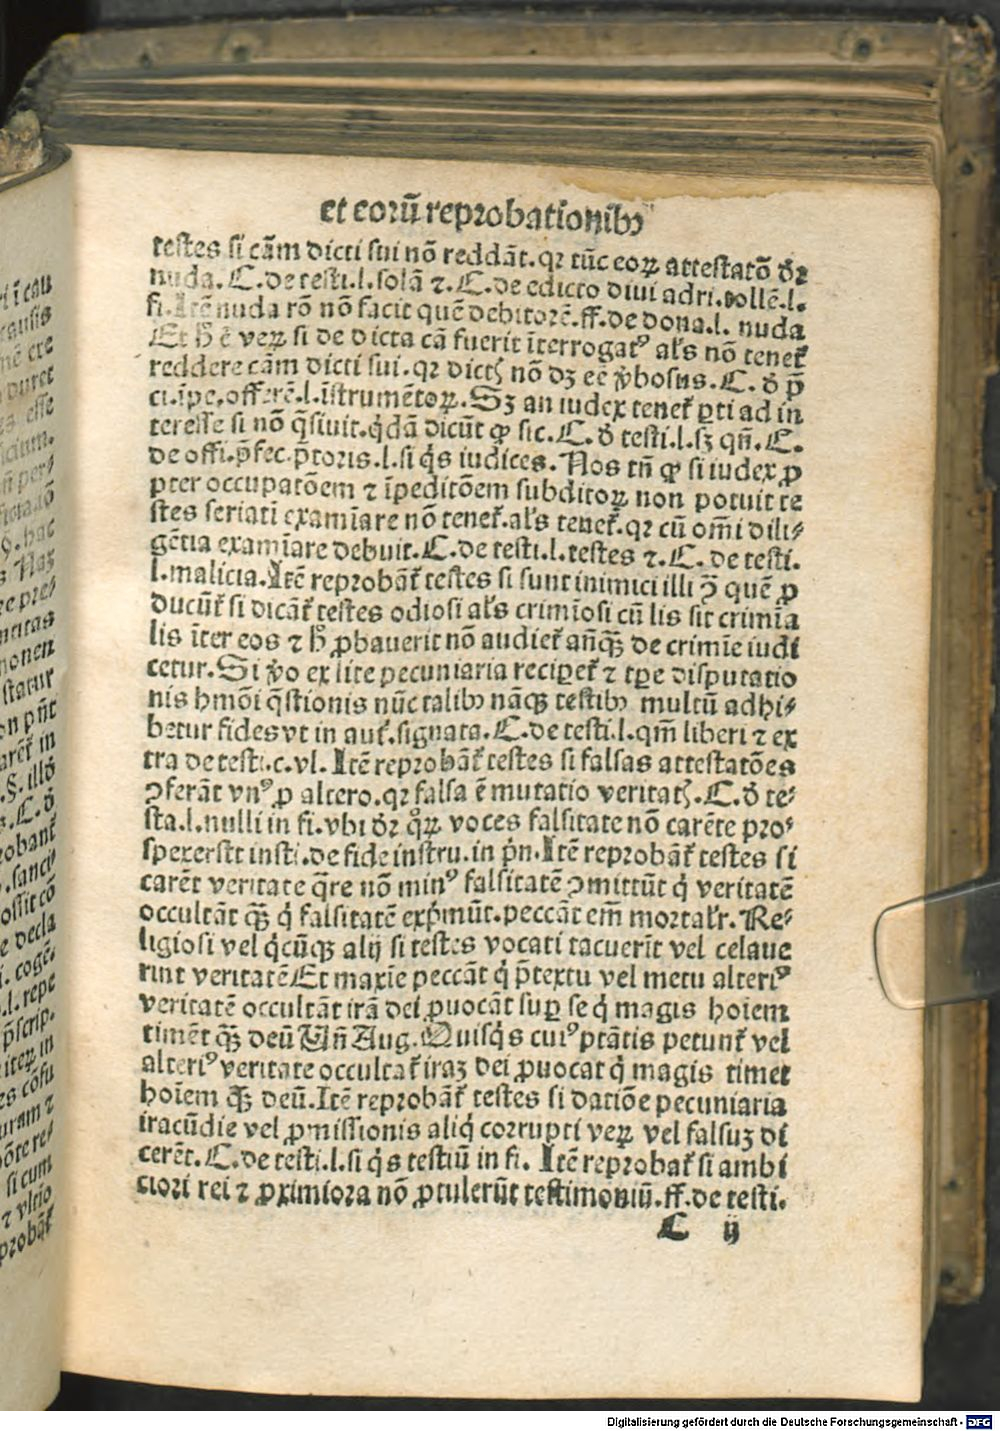 et eorũ reprobationibꝰ
testes si cãm dicti sui nõ reddãt. qꝛ tũc eoꝝ attestatõ dꝛ
nuda. C. de testi. l. solã ⁊. C. de edicto diui adri. tollẽ. l.
fi. Itẽ nuda rõ nõ facit quẽ debitorẽ. ff. de dona. l. nuda
Et ħ ẽ veꝝ si de dicta cã fuerit ĩterrogatꝰ als nõ tenet᷑
reddere cãm dicti sui. qꝛ dictꝭ nõ dꝫ eẽ v̓bosus. C. ð p̄
ci. ĩpe. offerẽ. l. ĩstrumẽtoꝝ. Sꝫ an iudex tenet᷑ ꝑti ad in
teresse si nõ q̃siuit. q̓dã dicũt ꝙ sic. C. ð testi. l. sꝫ qñ. C.
de offi. p̄fec. p̄toris. l. si q̓s iudices. Nos tñ ꝙ si iudex ꝓ
pter occupatõem ⁊ ĩpeditõem subditoꝝ non potuit te
stes seriatĩ examĩare nõ tenet᷑. als tenet᷑. qꝛ cũ om̃i dili⸗
gẽtia examĩare debuit. C. de testi. l. testes ⁊. C. de testi.
l. malicia. Itẽ reprobãt᷑ testes si sunt inimici illi ↄ̃ quẽ ꝓ
ducũt᷑ si dicãt᷑ testes odiosi als crimĩosi cũ lis sit crimĩa
lis ĩter eos ⁊ ħ ꝓbauerit nõ audiet᷑ añq̃ꝫ de crimĩe iudi
cetur. Si v̓o ex lite pecuniaria recipet᷑ ⁊ tꝑe disputatio
nis hmõi q̃stionis nũc talibꝰ nãqꝫ testibꝰ multũ adhi⸗
betur fides vt in aut᷑. signata. C. de testi. l. qm̃ liberi ⁊ ex
tra de testi. c. vl. Itẽ reprobãt᷑ testes si falsas attestatões
ↄferãt vnꝰ ꝓ altero. qꝛ falsa ẽ mutatio veritatꝭ. C. ð te⸗
sta. l. nulli in fi. vbi dꝛ qꝛ̃ꝝ voces falsitate nõ carẽte pro⸗
spexerĩt insti. de fide instru. in p̓n. Itẽ reprobãt᷑ testes si
carẽt veritate q̃re nõ minꝰ falsitatẽ ↄmittũt q̓ veritatẽ
occultãt q̃ꝫ q̓ falsitatẽ exp̓mũt. peccãt em̃ mortalr̃. Re⸗
ligiosi vel q̓cũqꝫ alij si testes vocati tacuerĩt vel celaue
rint veritatẽ Et maxĩe peccãt q̓ p̄textu vel metu alteriꝰ
veritatẽ occultãt irã dei ꝓuocãt suꝑ se q̓ magis hoĩem
timẽt q̃ꝫ deũ Vñ Aug. Quisq̓s cuiꝰ ptãtis petunt᷑ vel
alteriꝰ veritate occultat᷑ iraꝫ dei ꝓuocat q̓ magis timet
hoĩem q̃ꝫ deũ. Itẽ reprobãt᷑ testes si datiõe pecuniaria
iracũdie vel ꝓmissionis aliq̓ corrupti veꝝ vel falsuꝫ di
cerẽt. C. de testi. l. si q̓s testiũ in fi. Itẽ reprobat᷑ si ambi
ciori rei ⁊ ꝓximiora nõ ꝓtulerũt testimoniũ. ff. de testi.
C ij
Digitalisierung gefördert durch die Deutsche Forschungsgemeinschaft - DFG